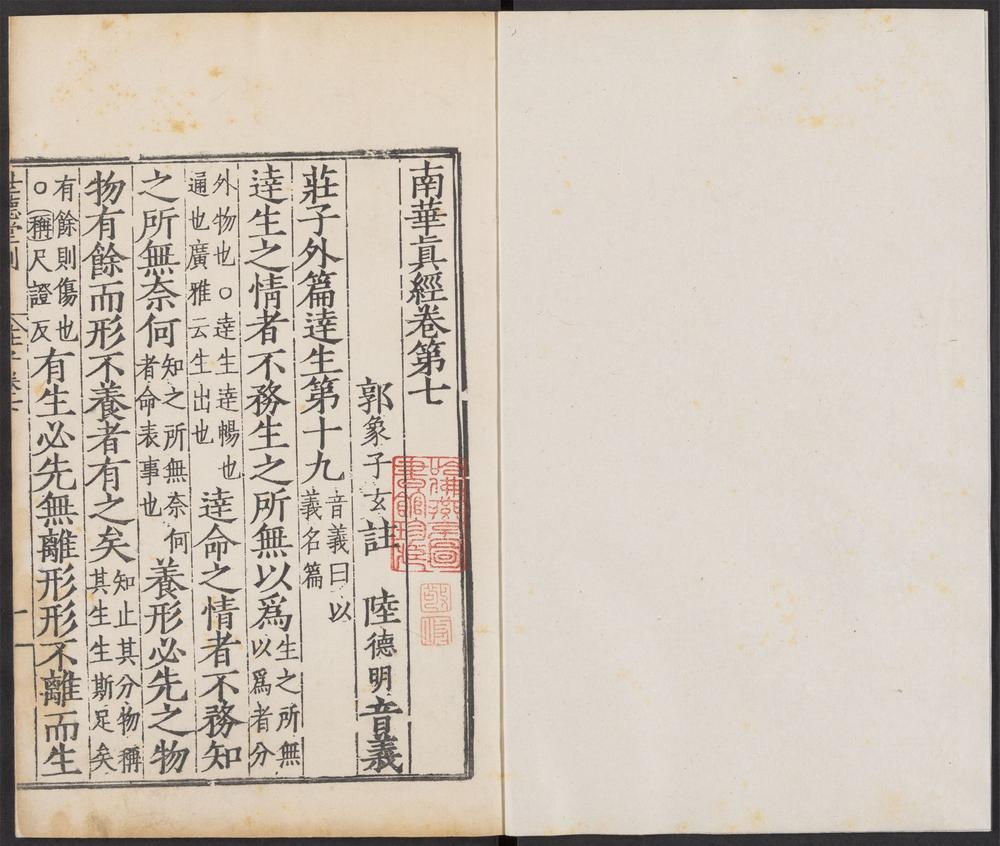 南華眞經卷第七
郭象子玄註 陸德明音義
莊子外篇達生第十九 音義曰以義名篇
達生之情者不務生之所無以爲 生之所無以爲者分
外物也○達生達暢也通也廣雅云生出也 達命之情者不務知
之所無奈何 知之所無奈何者命表事也 養形必先之物
物有餘而形不養者有之矣 知止其分物稱其生生斯足矣
有餘則傷也○稱尺證反 有生必先無離形形不離而生
世德堂刊